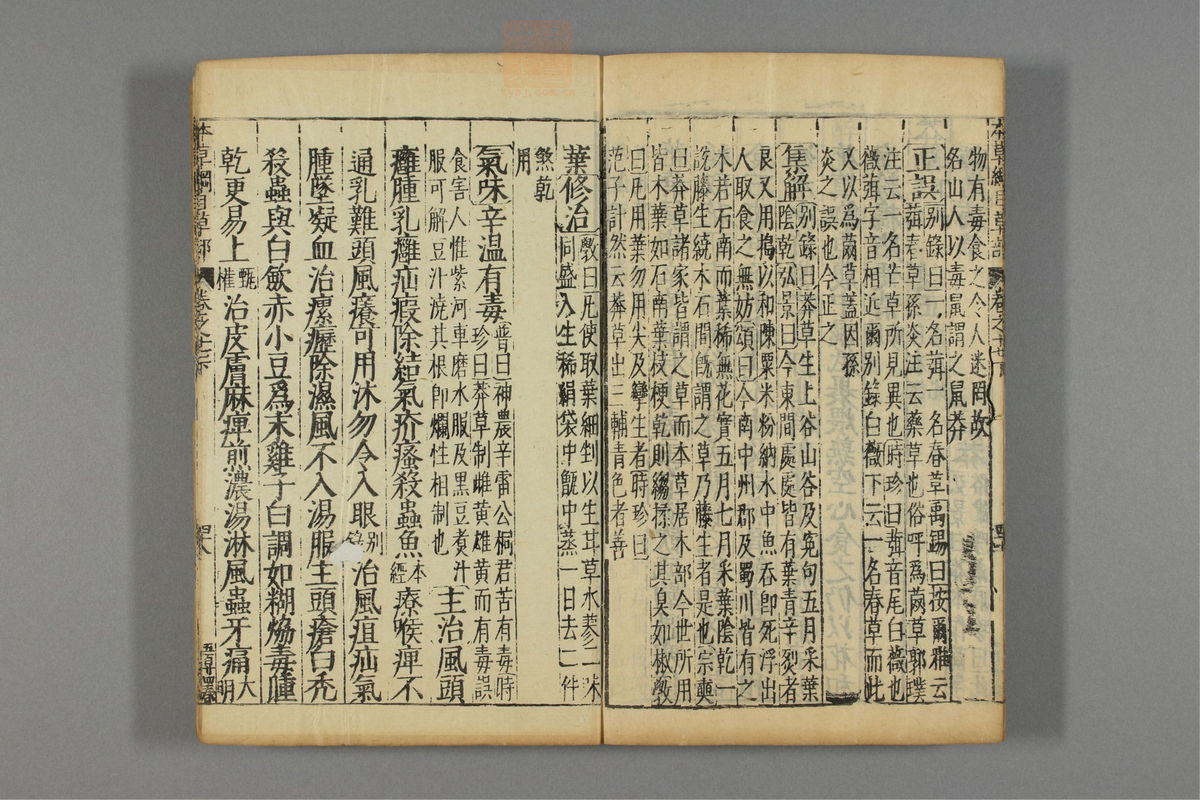 物有毒食之令人迷罔故
名山人以毒鼠謂之鼠莽
正誤別錄曰一名葞一名春草禹錫曰按爾雅云
葞春草孫炎注云藥草也俗呼爲䓞草郭璞
注云一名芒草所見異也時珍曰葞音尾白薇也
薇葞字音相近爾別錄白薇下云一名春草而此
又以爲䓞草蓋因孫
炎之誤也今正之
集解別錄曰莽草生上谷山谷及寃句五月采葉
陰乾弘景曰今東間處處皆有葉青辛烈者
良又用搗以和陳粟米粉納水中魚吞卽死浮出
人取食之無妨頌曰今南中州郡及蜀川皆有之
木若石南而葉稀無花實五月七月采葉陰乾一
說藤生繞木石間旣謂之草乃藤生者是也宗奭
曰莽草諸家皆謂之草而本草居木部今世所用
皆木葉如石南葉枝梗乾則縐揉之其臭如椒斆
曰凡用葉勿用尖及攣生者時珍曰
范子計然云莽草出三輔青色者善
葉修治斆曰凡使取葉細剉以生甘草水蓼二味
同盛入生稀絹袋中甑中蒸一日去二件
煞乾
用
氣味辛溫有毒普曰神農辛雷公桐君苦有毒時
珍曰莽草制雌黃雄黃而有毒誤
食害人惟紫河車磨水服及黑豆煮汁
服可解豆汁澆其根卽爛性相制也主治風頭
癰腫乳癰疝瘕除結氣疥瘙殺蟲魚本經療喉痺不
通乳難頭風癢可用沐勿令入眼別錄治風疽疝氣
腫墜凝血治瘰癧除濕風不入湯服主頭瘡白禿
殺蟲與白歛赤小豆爲末雞子白調如糊㷬毒腫
乾更易上甄權治皮膚麻痺煎濃湯淋風蟲牙痛大明
本草綱目草部
卷之十七下